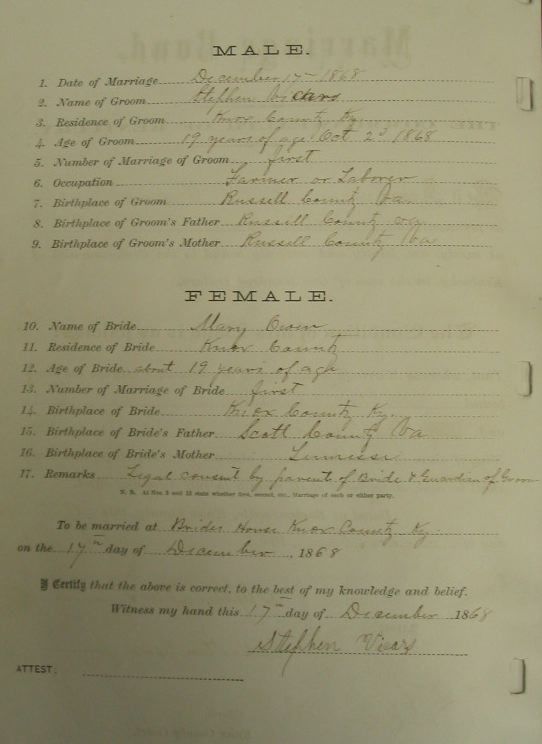 MALE.
1. Date of Marriage December 17th 1868
2. Name of Groom Stephen Vickrs
3. Residence of Groom Knox County Ky
4. Age of Groom 19 years of age Oct 2d 1868
5. Number of Marriage of Groom first
6. Occupation Farmer or Laborer
7. Birthplace of Groom Russell County Va
8. Birthplace of Groom's Father Russell County Va
9. Birthplace of Groom's Mother Russell County Va
FEMALE.
10. Name of Bride Mary
11. Residence of Bride Knox County
12. Age of Bride about 19 years of age
13. Number of Marriage of Bride first
14. Birthplace of Bride Knox County Ky.
15. Birthplace of Bride's Father Scott County Va
16. Birthplace of Bride's Mother
17. Remarks Legal consent by parents of Bride & Guardian of Groom
N. B. At Nos. 5 and 13 state whether first, second, etc., Marriage of each or either party.
To be married at Brides House Knox County Ky.
on the 17th day of December, 1868
I Certify that the above is correct, to the best of my knowledge and belief.
Witness my hand this 17th day of December 1868
Stephen Vicars
ATTEST: